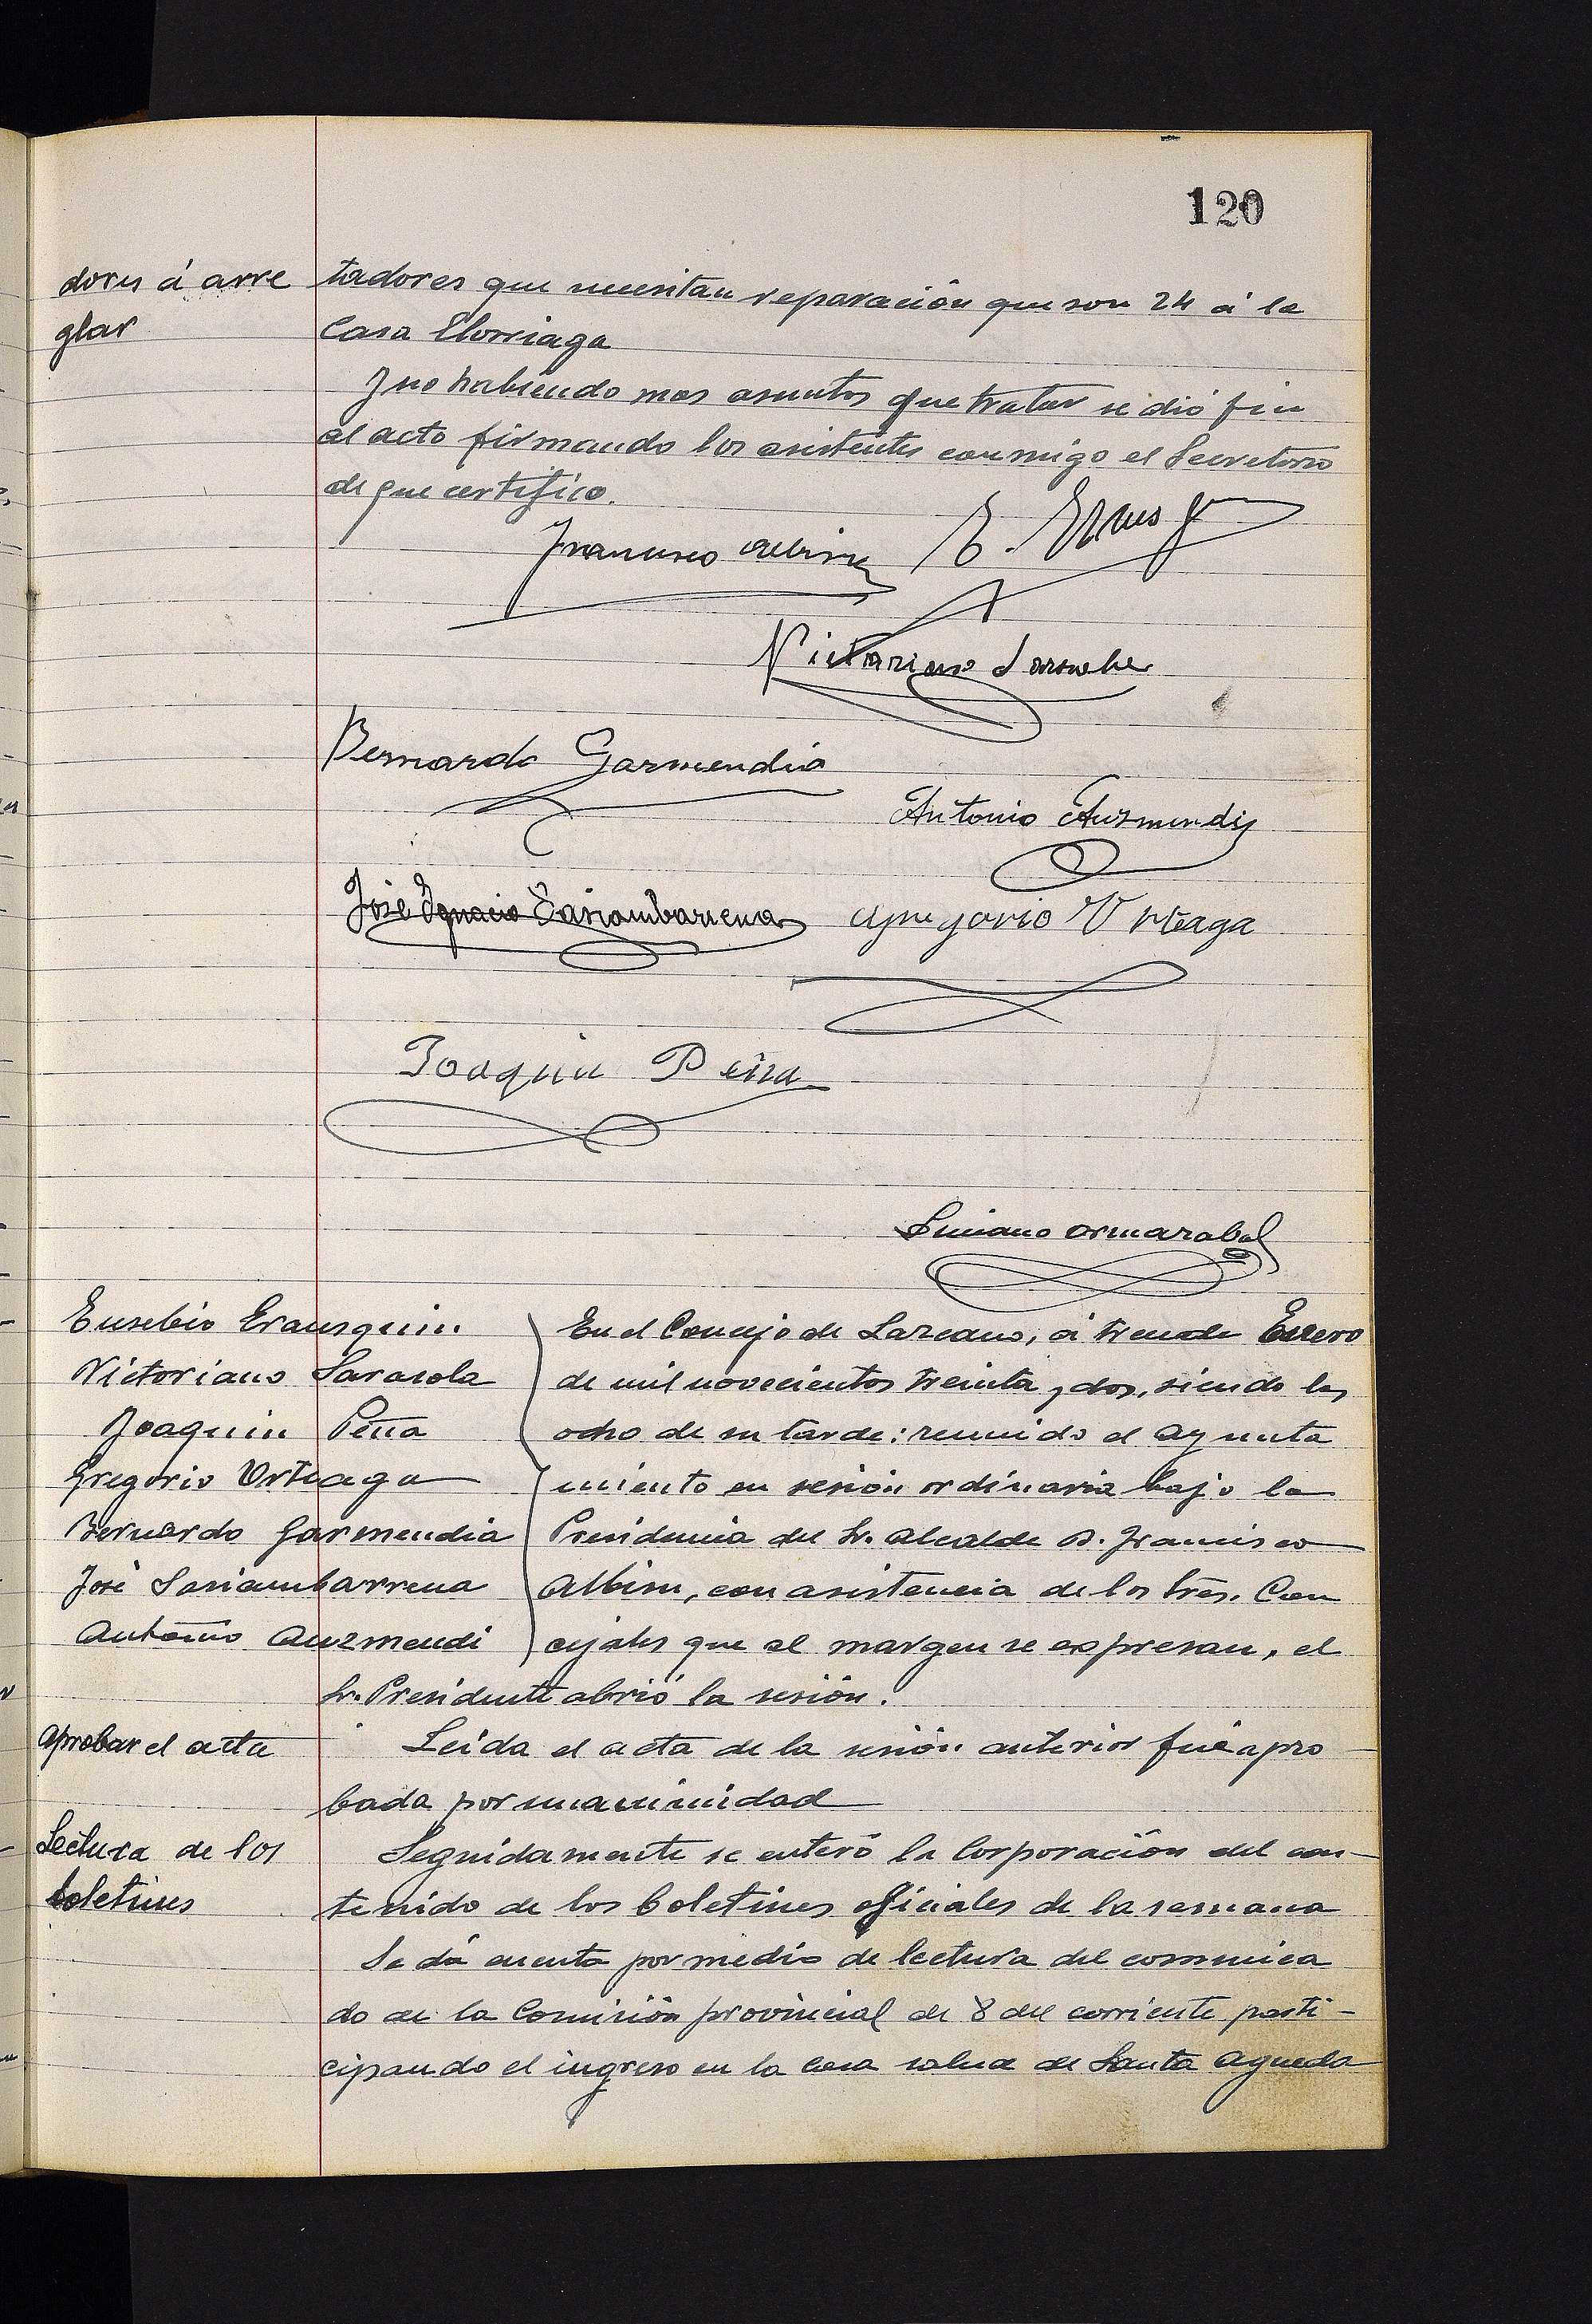 120
dores á arre
glar
tadores que necesitan reparación que son 24 á la
Casa Elorriaga
Y no habiendo mas asuntos que tratar se dió fin
al acto firmando los asistentes conmigo el Secretario
de que certifico.
Francisco Albisu
E. Erausq
Victoriano Sarasola
Bernardo Garmendia
Antonio Auzmendi
José Ignacio Sasiambarrena
Gregorio Urteaga
Joaquin Peña
Luciano Ormazabal
Eusebio Erausquin
Victoriano Sarasola
Joaquin Peña
Gregorio Urteaga
Bernardo Garmendia
José Sasiambarrena
Antonio Auzmendi
En el Concejo de Lazcano, á trece de Enero
de mil novecientos treinta y dos, siendo las
ocho de su tarde: reunido el Ayunta
miento en sesión ordinaria bajo la
Presidencia del Sr. Alcalde D. Francisco
Albisu, con asistencia de los Sres. Con
cejales que al margen se expresan, el
Sr. Presidente abrió la sesión.
Aprobar el acta
Leida el acta de la sesión anterior fué apro
bada por unanimidad
Lectura de los
boletines
Seguidamente se enteró la Corporación del con-
tenido de los boletines oficiales de la semana
Se dá cuenta por medio de lectura del comunica
do de la Comisión provincial de 8 del corriente parti-
cipando el ingreso en la casa salud de Santa Agueda